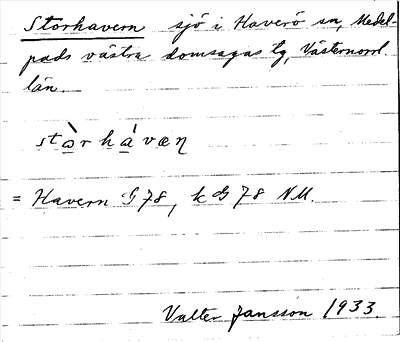 Storhavern sjö i Haverö sn, Medel-
pads västra domsagas tg, Västernorrl.
län.
stò̱rhá̱væn
= Havern G 78, k G 78 NM.
Valter Jansson 1933.